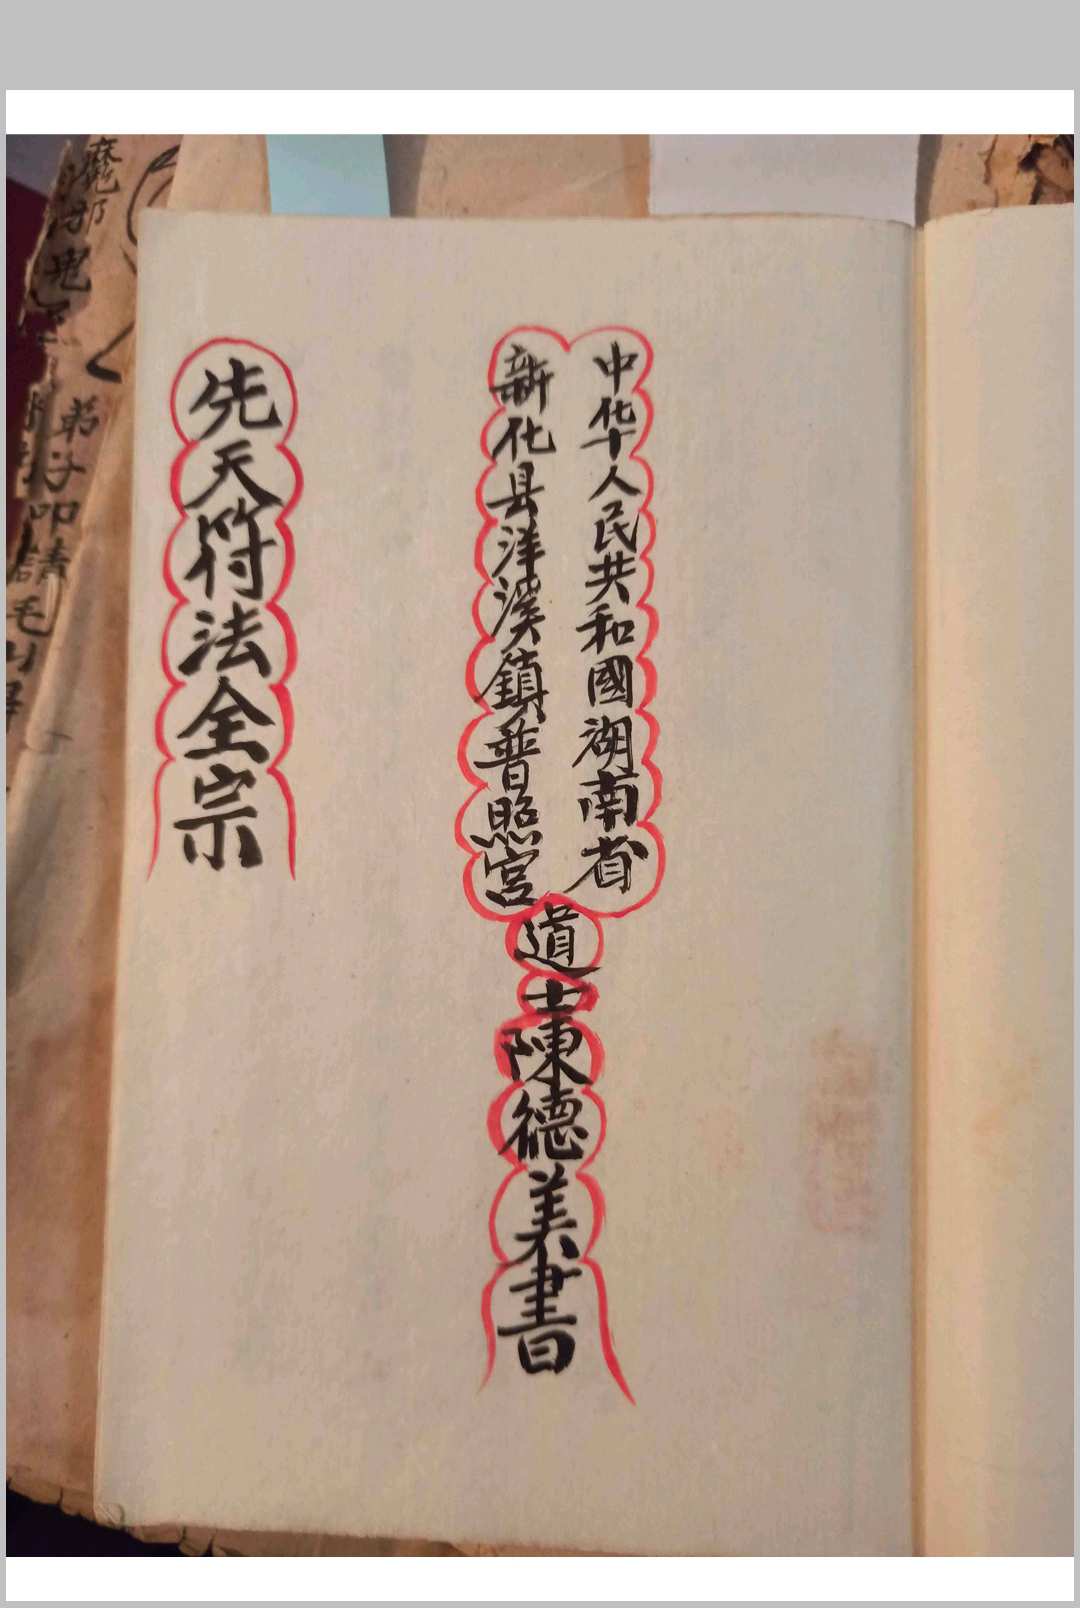 中华人民共和國湖南省
新化县洋溪鎮普照宫
道士陳德美書
先天符法全宗
魔邪
弟子叩請毛山